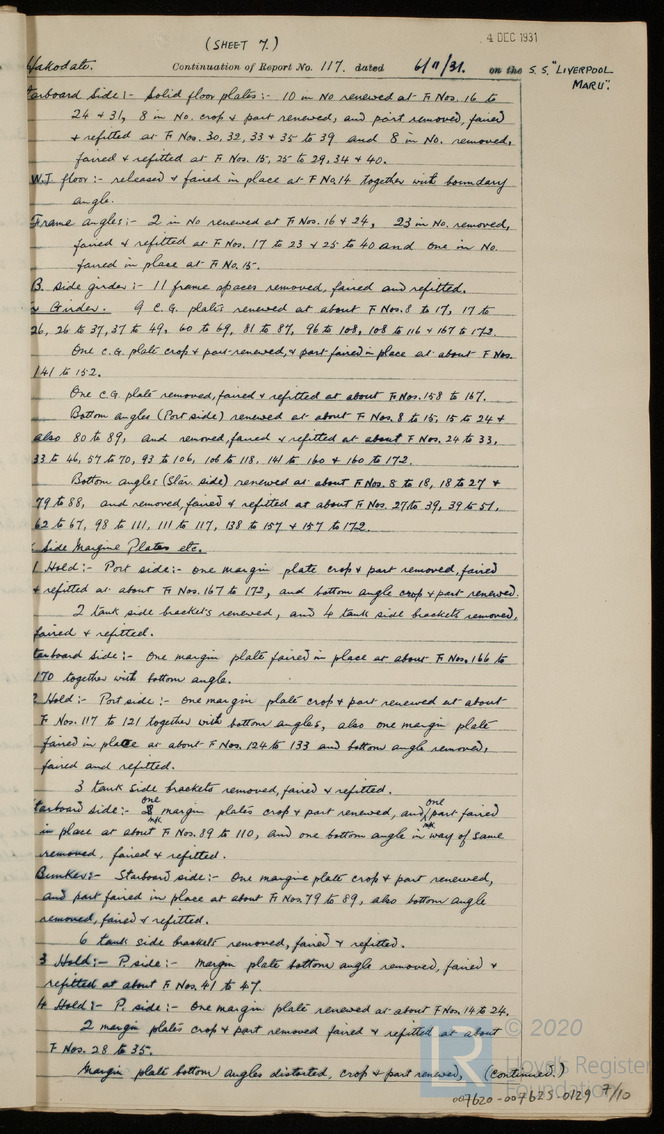 (SHEET 7.)
4 DEC 1931
Hakodate. Continuation of Report No. 117. dated 6/11/31. on the S.S. "LIVERPOOL
MARU".
tarboard Side:- Solid floor plates:- 10 in No renewed at F. Nos. 16 to
24 & 31, 8 in No. crop & part renewed, and part removed, faired
& refitted at F. Nos. 30, 32, 33 & 35 to 39 and 8 in No. removed,
faired & refitted at F. Nos. 15, 25 to 29, 34 & 40.
W.T. floor:- released & faired in place at F. No.14 together with boundary
angle.
Frame angles:- 2 in No renewed at F. Nos. 16 & 24, 23 in No. removed,
faired & refitted at F. Nos. 17 to 23 & 25 to 40 and one in No.
faired in place at F. No.15.
B. side girder:- 11 frame spaces removed, faired and refitted.
Girder. 9 C.G. plates renewed at about F. Nos. 8 to 17, 17 to
26, 26 to 37, 37 to 49, 60 to 69, 81 to 87, 96 to 108, 108 to 116 & 167 to 172.
One C.G. plate crop & part renewed, & part faired in place at about F. Nos.
141 to 152.
One C.G. plate removed, faired & refitted at about F. Nos. 158 to 167.
Bottom angles (Port side) renewed at about F. Nos. 8 to 15, 15 to 24 &
also 80 to 89, and removed, faired & refitted at about F. Nos. 24 to 33,
33 to 46, 57 to 70, 93 to 106, 106 to 118, 141 to 160 & 160 to 172.
Bottom angles (Star. side) renewed at about F. Nos. 8 to 18, 18 to 27 &
79 to 88, and removed, faired & refitted at about F. Nos. 27 to 39, 39 to 51,
62 to 67, 98 to 111, 111 to 117, 138 to 157 & 157 to 172.
Side Margine Plates etc.
1 Hold:- Port side:- One margin plate crop & part removed, faired
& refitted at about F. Nos. 167 to 172, and bottom angle crop & part renewed.
2 tank side brackets renewed, and 4 tank side brackets removed,
faired & refitted.
tarboard side:- One margin plate faired in place at about F. Nos. 166 to
170 together with bottom angle.
2 Hold:- Port side:- One margin plate crop & part renewed at about
F. Nos. 117 to 121 together with bottom angles, also one margin plate
faired in place at about F. Nos. 124 to 133 and bottom angle removed,
faired and refitted.
3 tank side brackets removed, faired & refitted.
tarboard side:- one margin plates crop & part renewed, and one part faired
in place at about F. Nos. 89 to 110, and one bottom angle in way of same
removed, faired & refitted.
Bunker:- Starboard side:- One margine plate crop & part renewed,
and part faired in place at about F. Nos. 79 to 89, also bottom angle
removed, faired & refitted.
6 tank side brackets removed, faired & refitted.
3 Hold:- P. side:- Margin plate bottom angle removed, faired &
refitted at about F. Nos. 41 to 47.
4 Hold:- P. side:- One margin plate renewed at about F. Nos. 14 to 24.
2 margin plates crop & part removed faired & refitted at about
F. Nos. 28 to 35.
Margin plate bottom angles distorted, crop & part renewed, (Continued.)
LR © 2020
Lloyd's Register
Foundation
007620-007623-0129 7/10